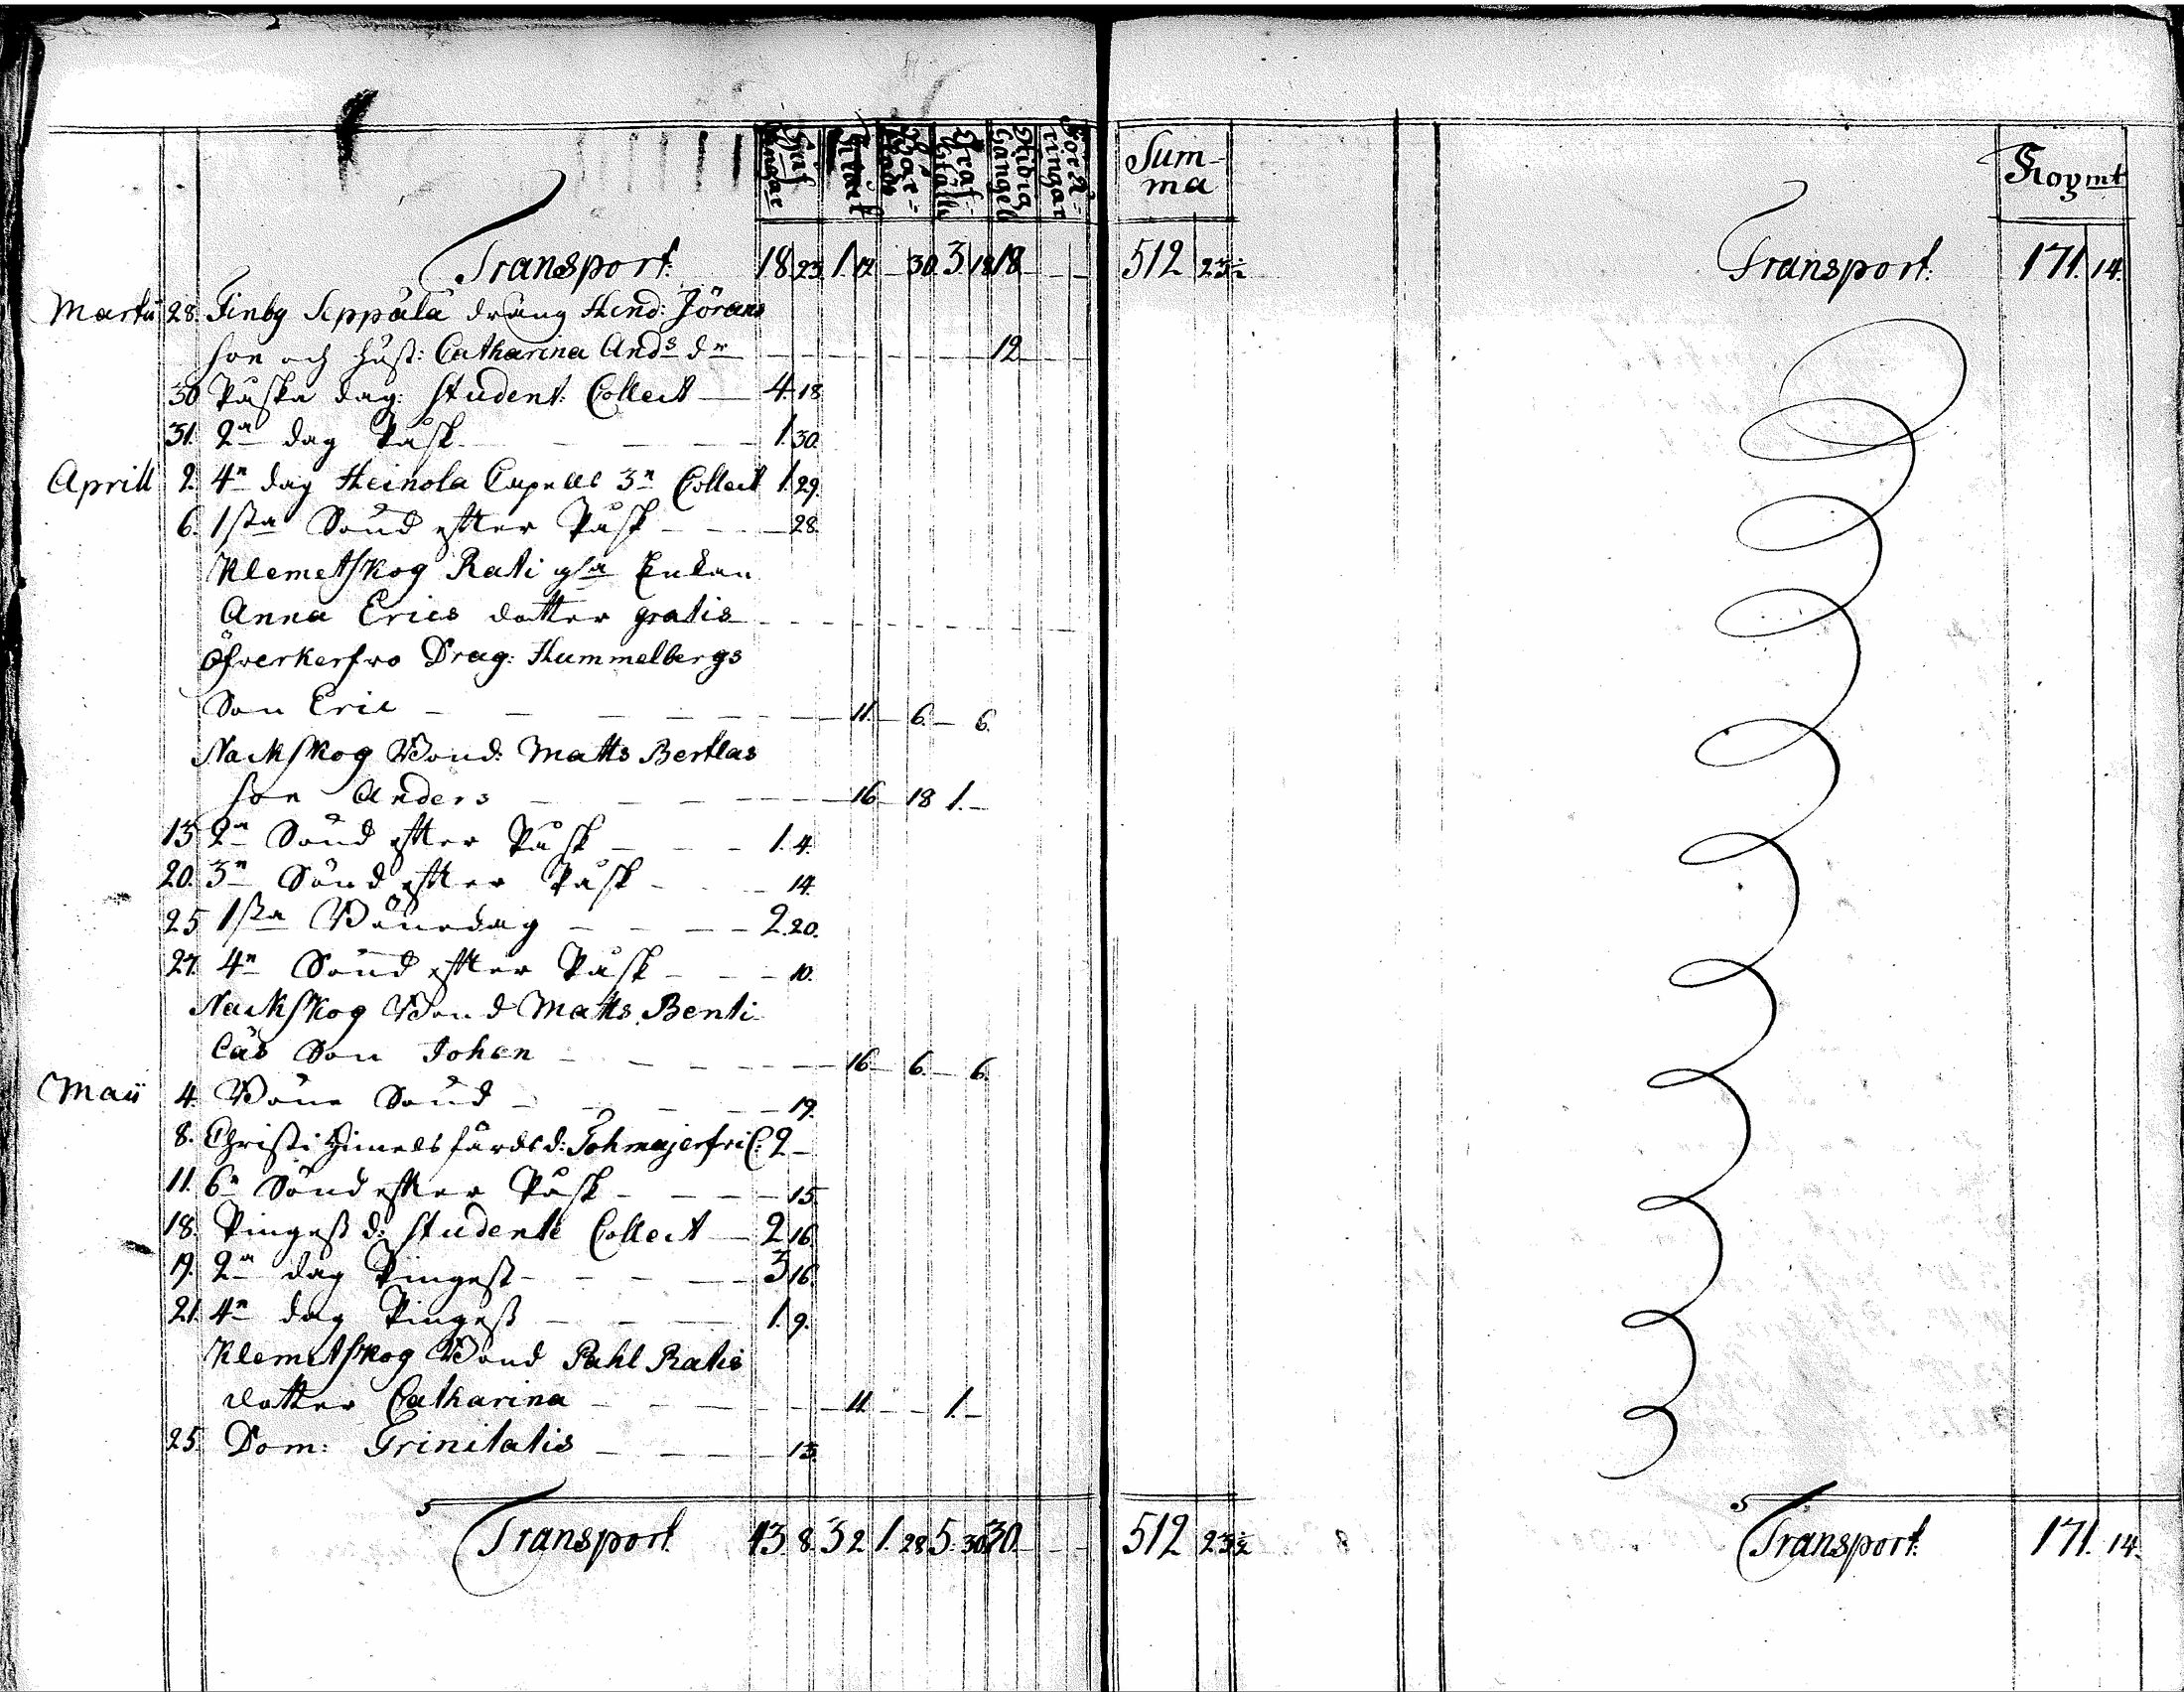 Summa
Kopmt
Transport 18 23. 1. 12 30. 3 18 18 512 23½
Transport. 171. 14.
Martii 28. Finby Seppälä dräng Hend: Jörans
son och hust: Catharina Ands dr 12
30 Påska dag: Student. Collect 4. 18
31. 2a dag Påsk 1. 30.
Aprill 2. 4n dag Heinola Capells 3n Collect 1. 29.
6. 1sta Sönd efter Påsk 28.
Klemetskog Rati gla Enkan
Anna Erics dotter gratis
Öfverkerfvo Drag: Hummelbergs
Son Eric 11. 6. 6.
Nackskog Bond: Matts Bertlas
son Anders 16 18 1.
13 2n Sönd efter Påsk 1. 4.
20. 3n Sönd efter Påsk 14.
25 1sta Bönedag 2. 20.
27. 4n Sönd efter Påsk 10.
Nackskog Bond Matts Benti
läs Son Johan 16 6. 6.
Maii 4. Böne Sönd 19.
8. Christi Himmelsfärds d: Tohmajerfvi C: 2
11. 6n Sönd efter Påsk 15.
18. Pingest d: Studente Collect 2 16.
19. 2n dag Pingest 3 16.
21. 4n dag Pingest 1. 9.
Klemetskog Bond Pahl Ratis
dotter Catharina 11. 1.
25. Dom: Trinitatis 13.
Transport 43. 8. 3 2 1. 28 5. 30 30. 512 23½
Transport. 171. 14.